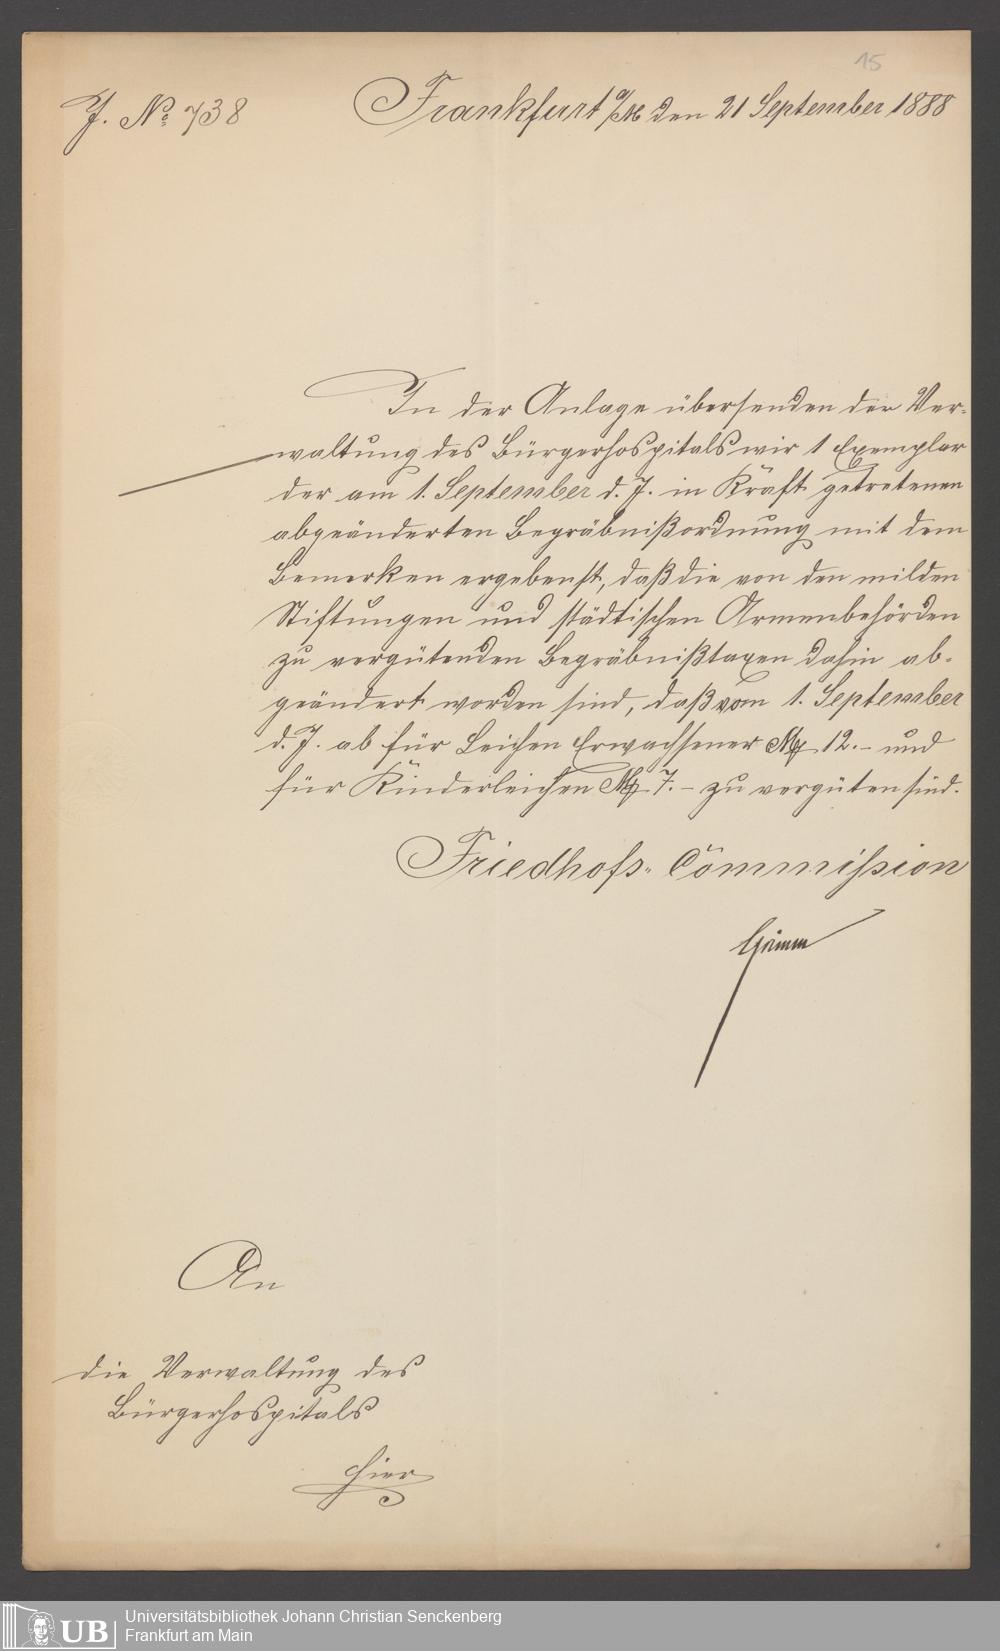 15
J. No 738
Frankfurt a/M den 21 September 1888
In der Anlage übersenden der Ver-
waltung des Bürgerhospitals wir 1 Exemplar
der am 1. September d. J. in Kraft getretenen
abgeänderten Begräbnißordnung mit dem
Bemerken ergebenst, daß die von den milden
Stiftungen und städtischen Armenbehörden
zu vergütenden Begräbnißtaxen dahin ab-
geändert worden sind, daß vom 1. September
d. J. ab für Leichen Erwachsener M 12.- und
für Kinderleichen M 7.- zu vergüten sind.
Friedhofs-Commission
Grimm
An
die Verwaltung des
Bürgerhospitals
hier
UB
Universitätsbibliothek Johann Christian Senckenberg
Frankfurt am Main